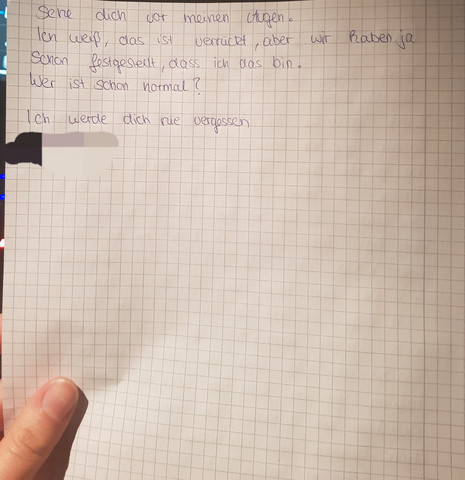 Sehe dich vor meinen Augen.
Ich weiß, das ist verrückt, aber wir haben ja
schon festgestellt, dass ich das bin.
Wer ist schon normal?
Ich werde dich nie vergessen